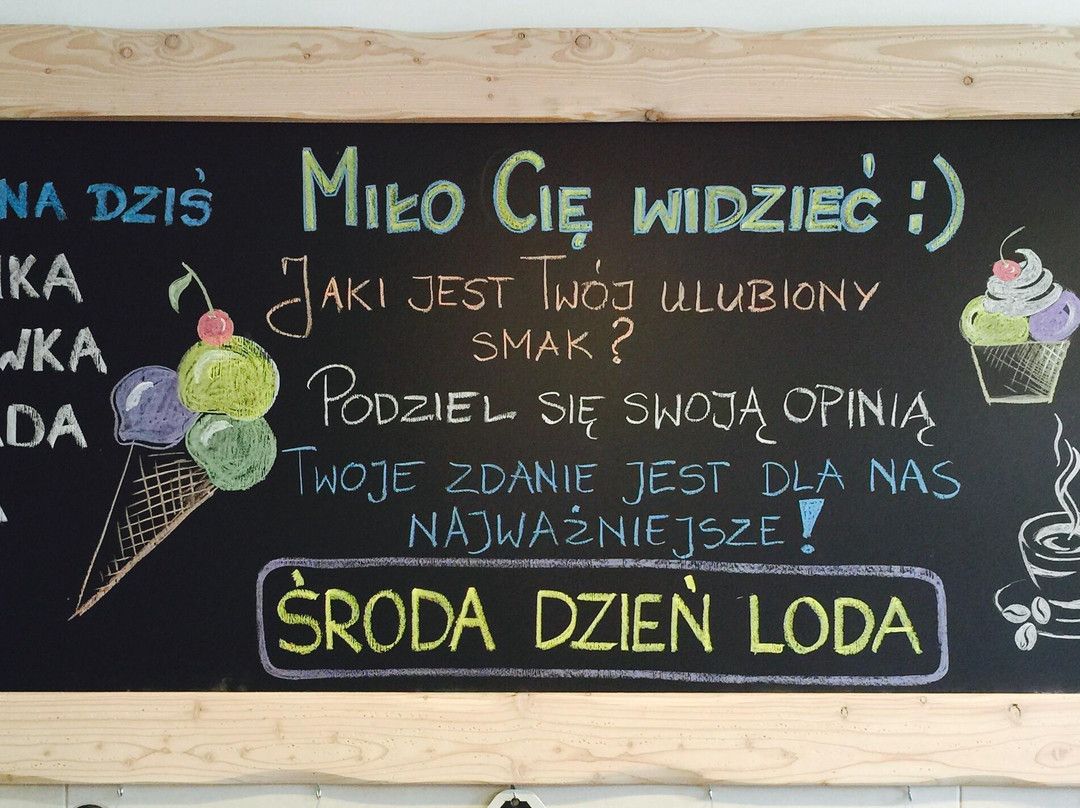 NA DZIŚ
MIŁO CIĘ WIDZIEĆ :)
JAKI JEST TWÓJ ULUBIONY
SMAK?
PODZIEL SIĘ SWOJĄ OPINIĄ
TWOJE ZDANIE JEST DLA NAS
NAJWAŻNIEJSZE!
ŚRODA DZIEŃ LODA